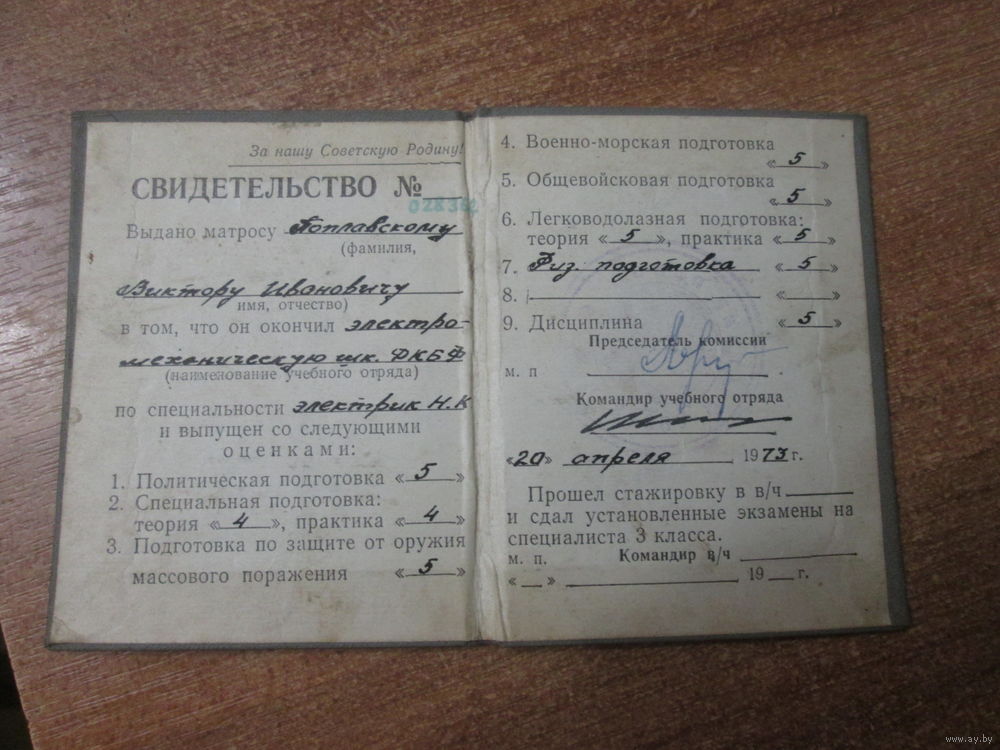 За нашу Советскую Родину!
СВИДЕТЕЛЬСТВО №
028362
Выдано матросу Поплавскому
(фамилия,
Виктору Ивановичу
имя, отчество)
в том, что он окончил электро-
механическую шк. ДКБФ
(наименование учебного отряда)
по специальности электрик Н.К
и выпущен со следующими
оценками:
1. Политическая подготовка «5»
2. Специальная подготовка:
теория «4», практика «4»
3. Подготовка по защите от оружия
массового поражения «5»
4. Военно-морская подготовка
«5»
5. Общевойсковая подготовка
«5»
6. Легководолазная подготовка:
теория «5», практика «5»
7. Физ. подготовка «5»
8. «»
9. Дисциплина «5»
Председатель комиссии
м. п
Командир учебного отряда
«20» апреля 1973 г.
Прошел стажировку в в/ч
и сдал установленные экзамены на
специалиста 3 класса.
м. п. Командир в/ч
« » 19 г.
www.ay.by